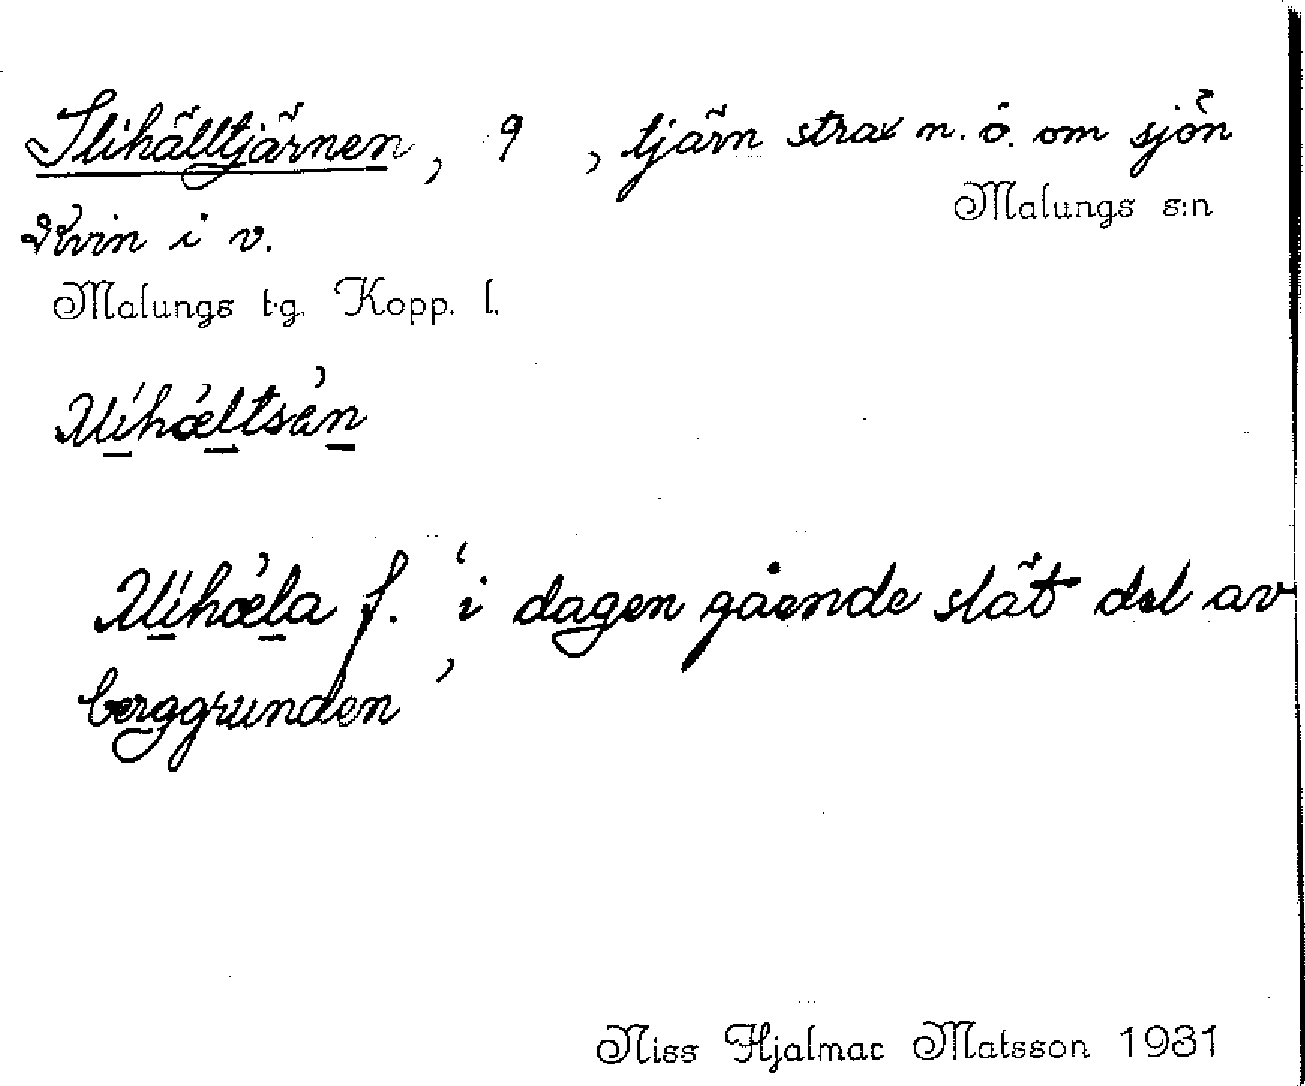 Slihälltjärnen, 9, tjärn strax n. ö. om sjön
Malungs s:n
i v.
Malungs t.g. Kopp. l.
f. 'i dagen gående slät del av
berggrunden'
Niss Hjalmar Matsson 1931